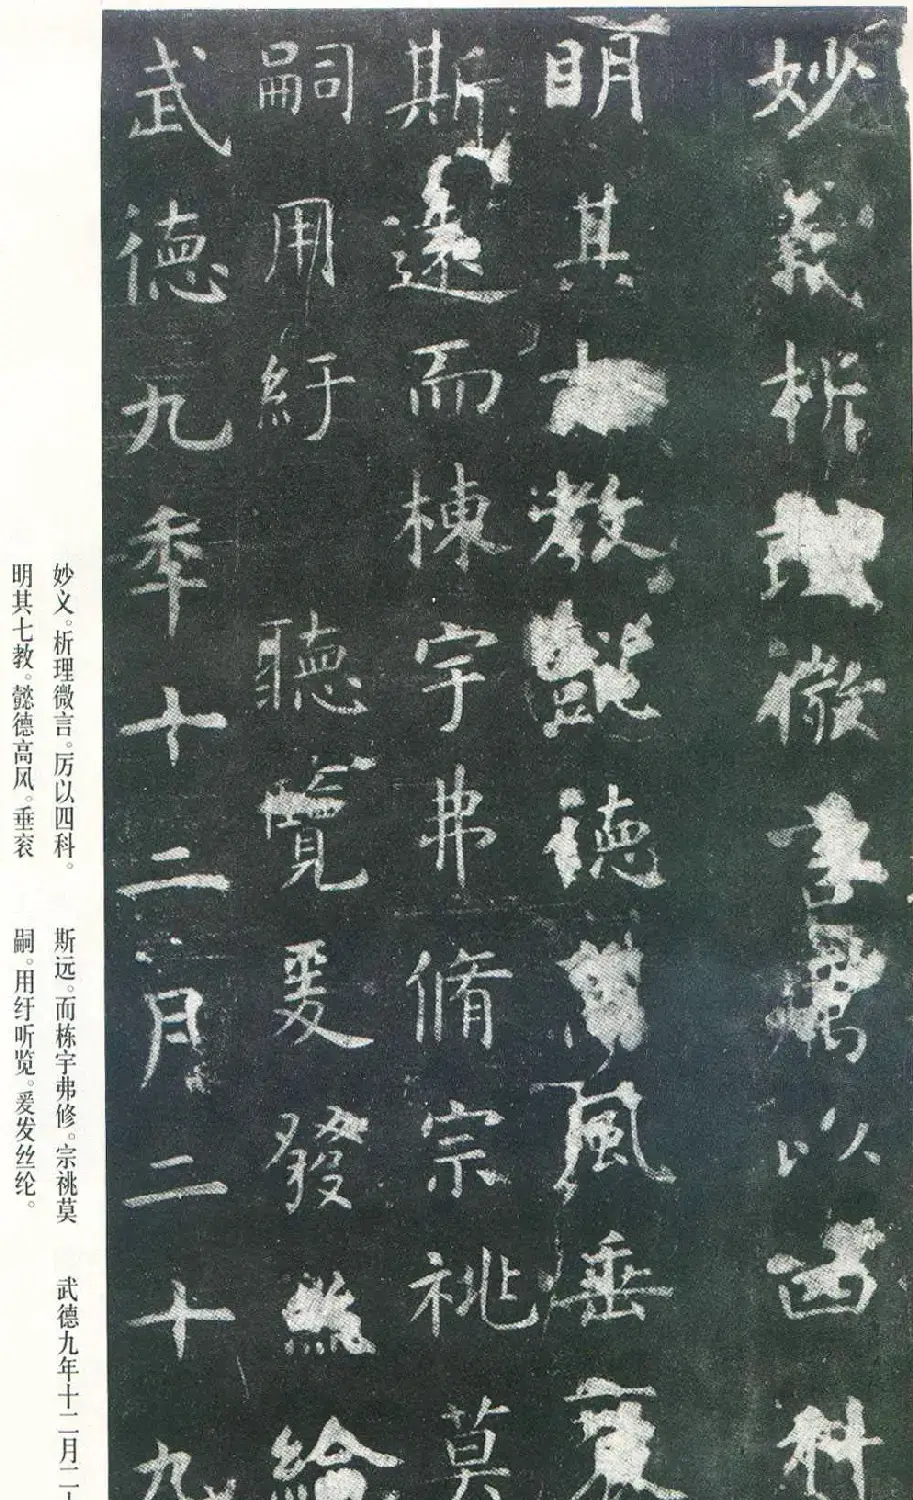 妙義析理微言厲以四科
明其七教懿德高風垂衮
斯遠而棟宇弗脩宗祧莫
嗣用紆聽覽爰發絲綸
武德九年十二月二十九
妙义。析理微言。厉以四科。
明其七教。懿德高风。垂衮
斯远。而栋宇弗修。宗祧莫
嗣。用纡听览。爰发丝纶。
武德九年十二月二十